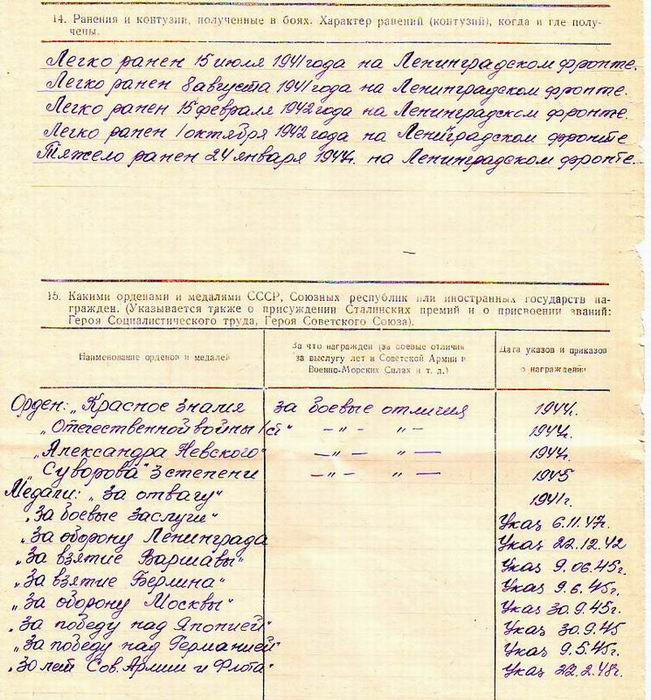 14. Ранения и контузии, полученные в боях. Характер ранений (контузий), когда и где полу-
чены.
Легко ранен 15 июля 1941 года на Ленинградском фронте.
Легко ранен 8 августа 1941 года на Ленинградском фронте.
Легко ранен 15 февраля 1942 года на Ленинградском фронте.
Легко ранен 1 октября 1942 года на Ленинградском фронте
Тяжело ранен 24 января 1944г. на Ленинградском фронте.
15. Какими орденами и медалями СССР, Союзных республик или иностранных государств на-
гражден. (Указывается также о присуждении Сталинских премий и о присвоении званий:
Героя Социалистического труда, Героя Советского Союза).
Наименование орденов и медалей
За что награжден (за боевые отличия
за выслугу лет в Советской Армии и
Военно-Морских Силах и т. д.)
Дата указов и приказов
о награждении
Орден: „Красное знамя за боевые отличия 1944г.
„Отечественной войны I ст" —"— "— 1944г.
„Александра Невского" —"— "— 1944г.
„Суворова" 3 степени —"— "— 1945
Медали: „За отвагу" 1941г.
„За боевые заслуги" Указ 6.11.47г.
„За оборону Ленинграда Указ 22.12.42
„За взятие Варшавы" Указ 9.06.45г.
„За взятие Берлина" Указ 9.6.45г.
„За оборону Москвы" Указ 30.9.45г.
„За победу над Японией" Указ 30.9.45
„За победу над Германией" Указ 9.5.45г.
„30 лет Сов. Армии и Флота" Указ 22.2.48г.